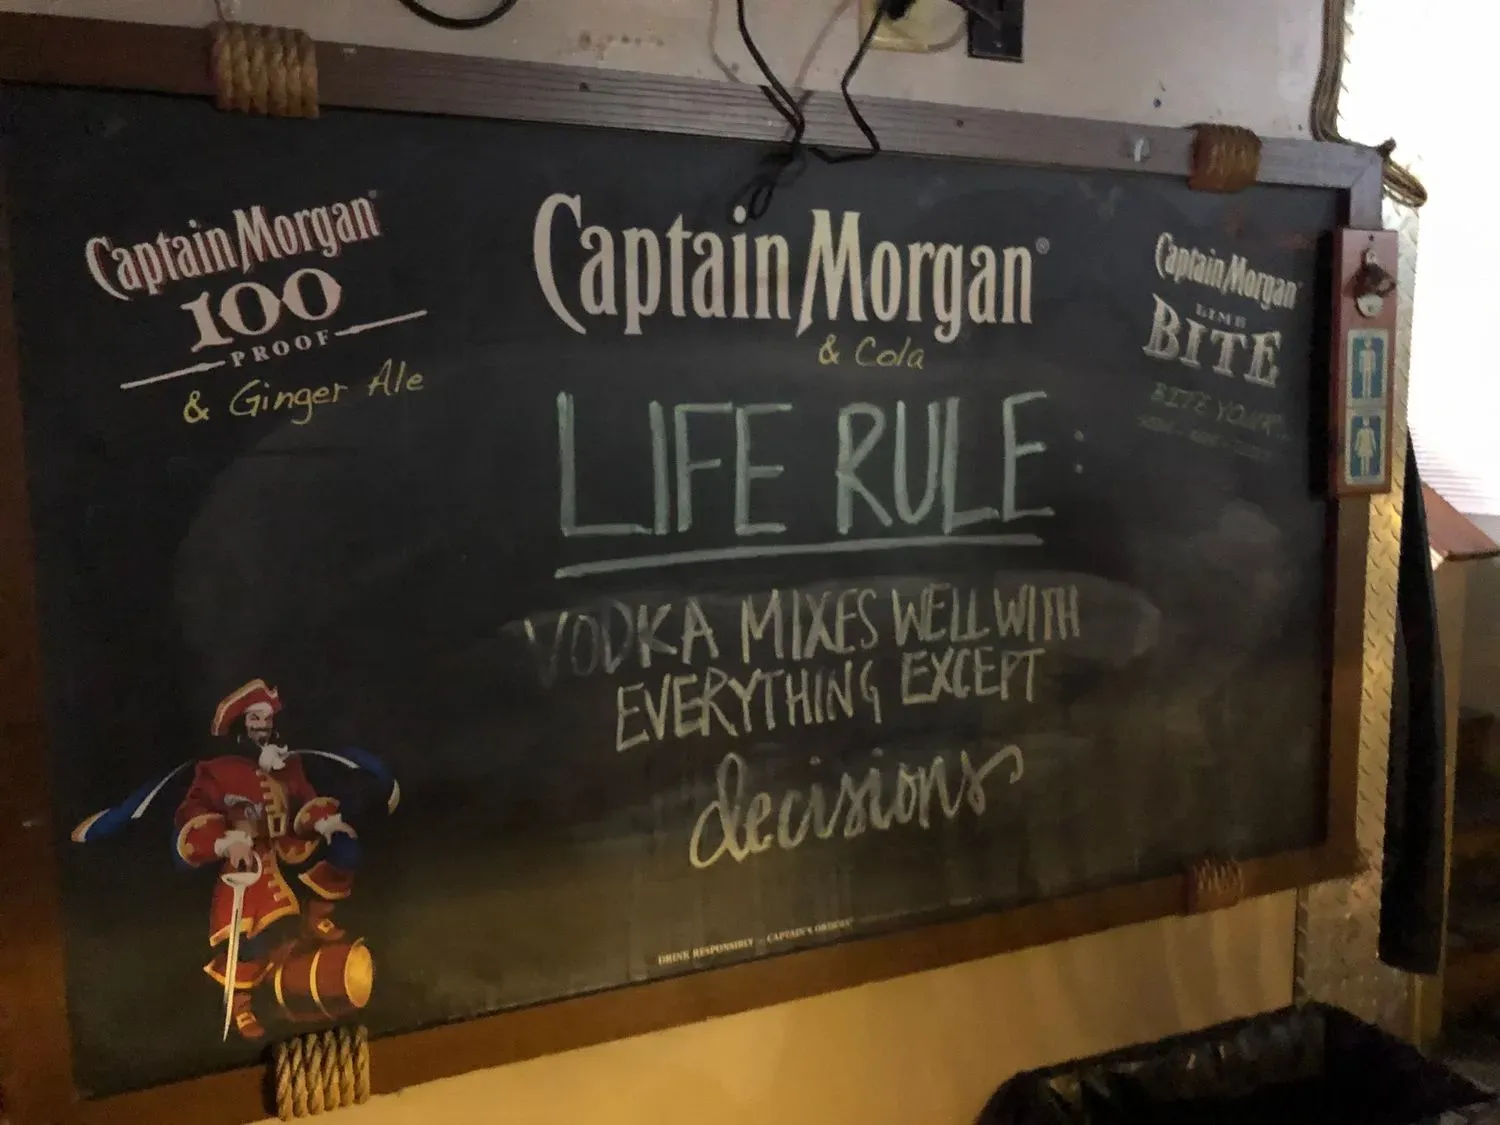 Captain Morgan®
100
PROOF
& Ginger Ale
Captain Morgan®
& Cola
Captain Morgan
LIME
BITE
BITE
LIFE RULE:
VODKA MIXES WELL WITH
EVERYTHING EXCEPT
decisions
DRINK RESPONSIBLY – CAPTAIN'S ORDERS!